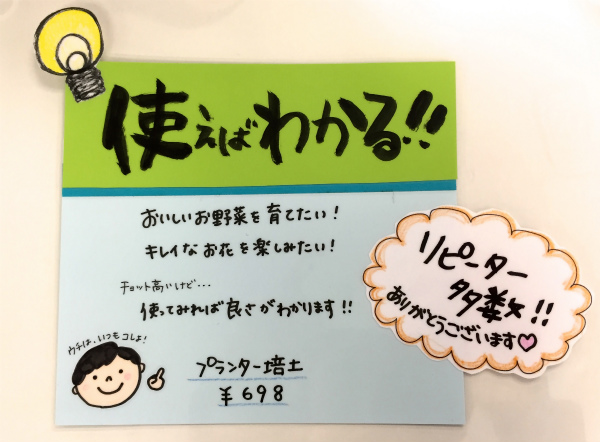 使えばわかる!!
おいしいお野菜を育てたい!
キレイなお花を楽しみたい!
チョット高いけど…
使ってみれば良さがわかります!!
ウチは、いつもコレよ!
プランター培土
¥698
リピーター
多数!!
ありがとうございます♡